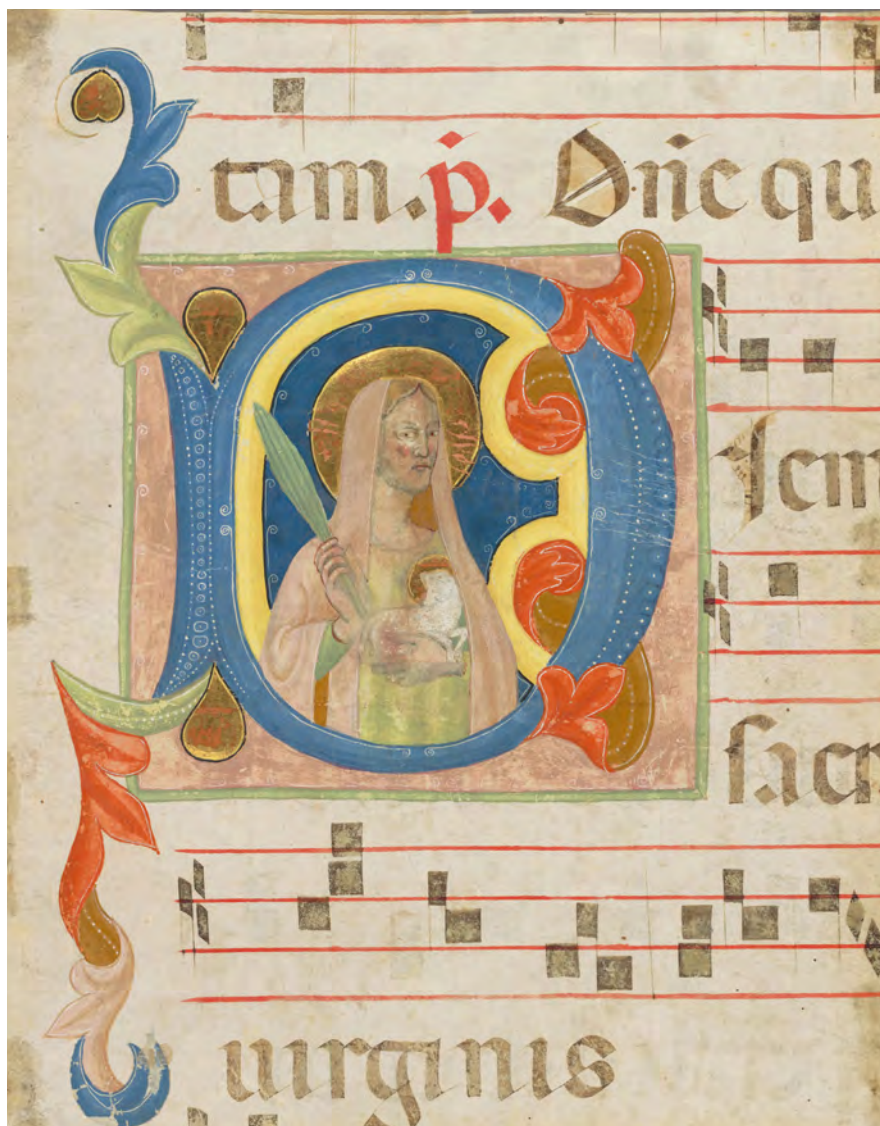 tam. p̄. Dn̄e qu
Diem
sacr
uirginis